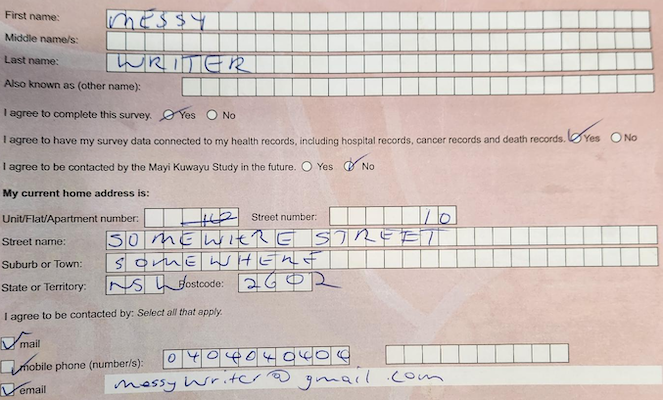 First name: MESSY
Middle name/s:
Last name: WRITER
Also known as (other name):
I agree to complete this survey. Yes No
I agree to have my survey data connected to my health records, including hospital records, cancer records and death records. Yes No
I agree to be contacted by the Mayi Kuwayu Study in the future. Yes No
My current home address is:
Unit/Flat/Apartment number: Street number: 10
Street name: SOMEWHRE STREET
Suburb or Town: SOMEWHERE
State or Territory: NSW Postcode: 2602
I agree to be contacted by: Select all that apply.
mail
mobile phone (number/s): 0404040404
email messywriter@gmail.com